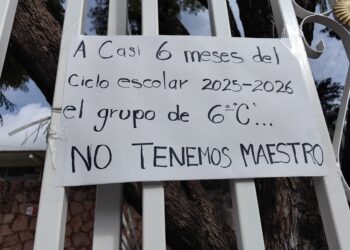 A Casi 6 meses del
Ciclo escolar 2025-2026
el grupo de 6°"C"...
NO TENEMOS MAESTRO